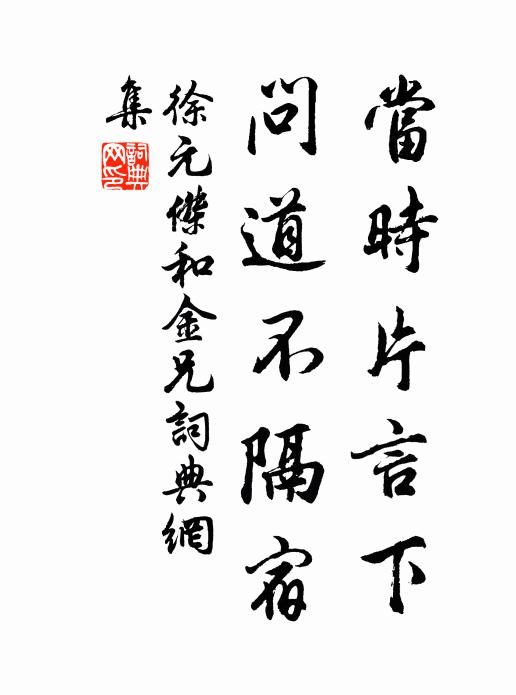 當時片言下
問道不隔宿
徐元傑和金兄詞典網
集
詞典
网印